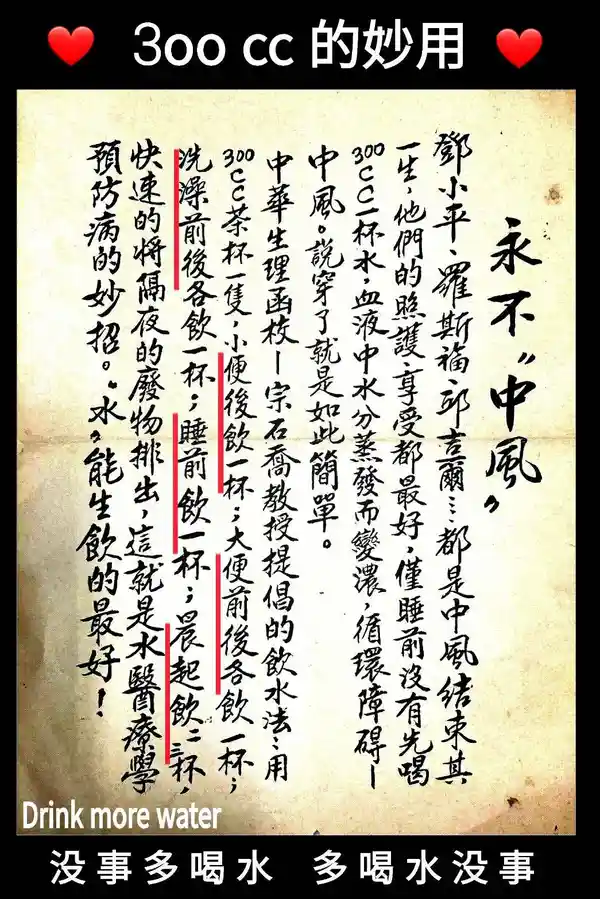 ❤️ 300 cc 的妙用 ❤️
永不“中風”
鄧小平、羅斯福、邱吉爾…都是中風結束其
一生,他們的照護、享受都最好,僅睡前沒有先喝
300CC一杯水,血液中水分蒸發而變濃,循環障碍—
中風。說穿了就是如此簡單。
中華生理函校—宗石喬教授提倡的飲水法:用
300CC茶杯一隻,小便後飲一杯;大便前後各飲一杯;
洗澡前後各飲一杯;睡前飲一杯;晨起飲二三杯,
快速的將隔夜的廢物排出,這就是水醫療學
預防病的妙招。“水”能生飲的最好!
Drink more water
没事多喝水 多喝水没事